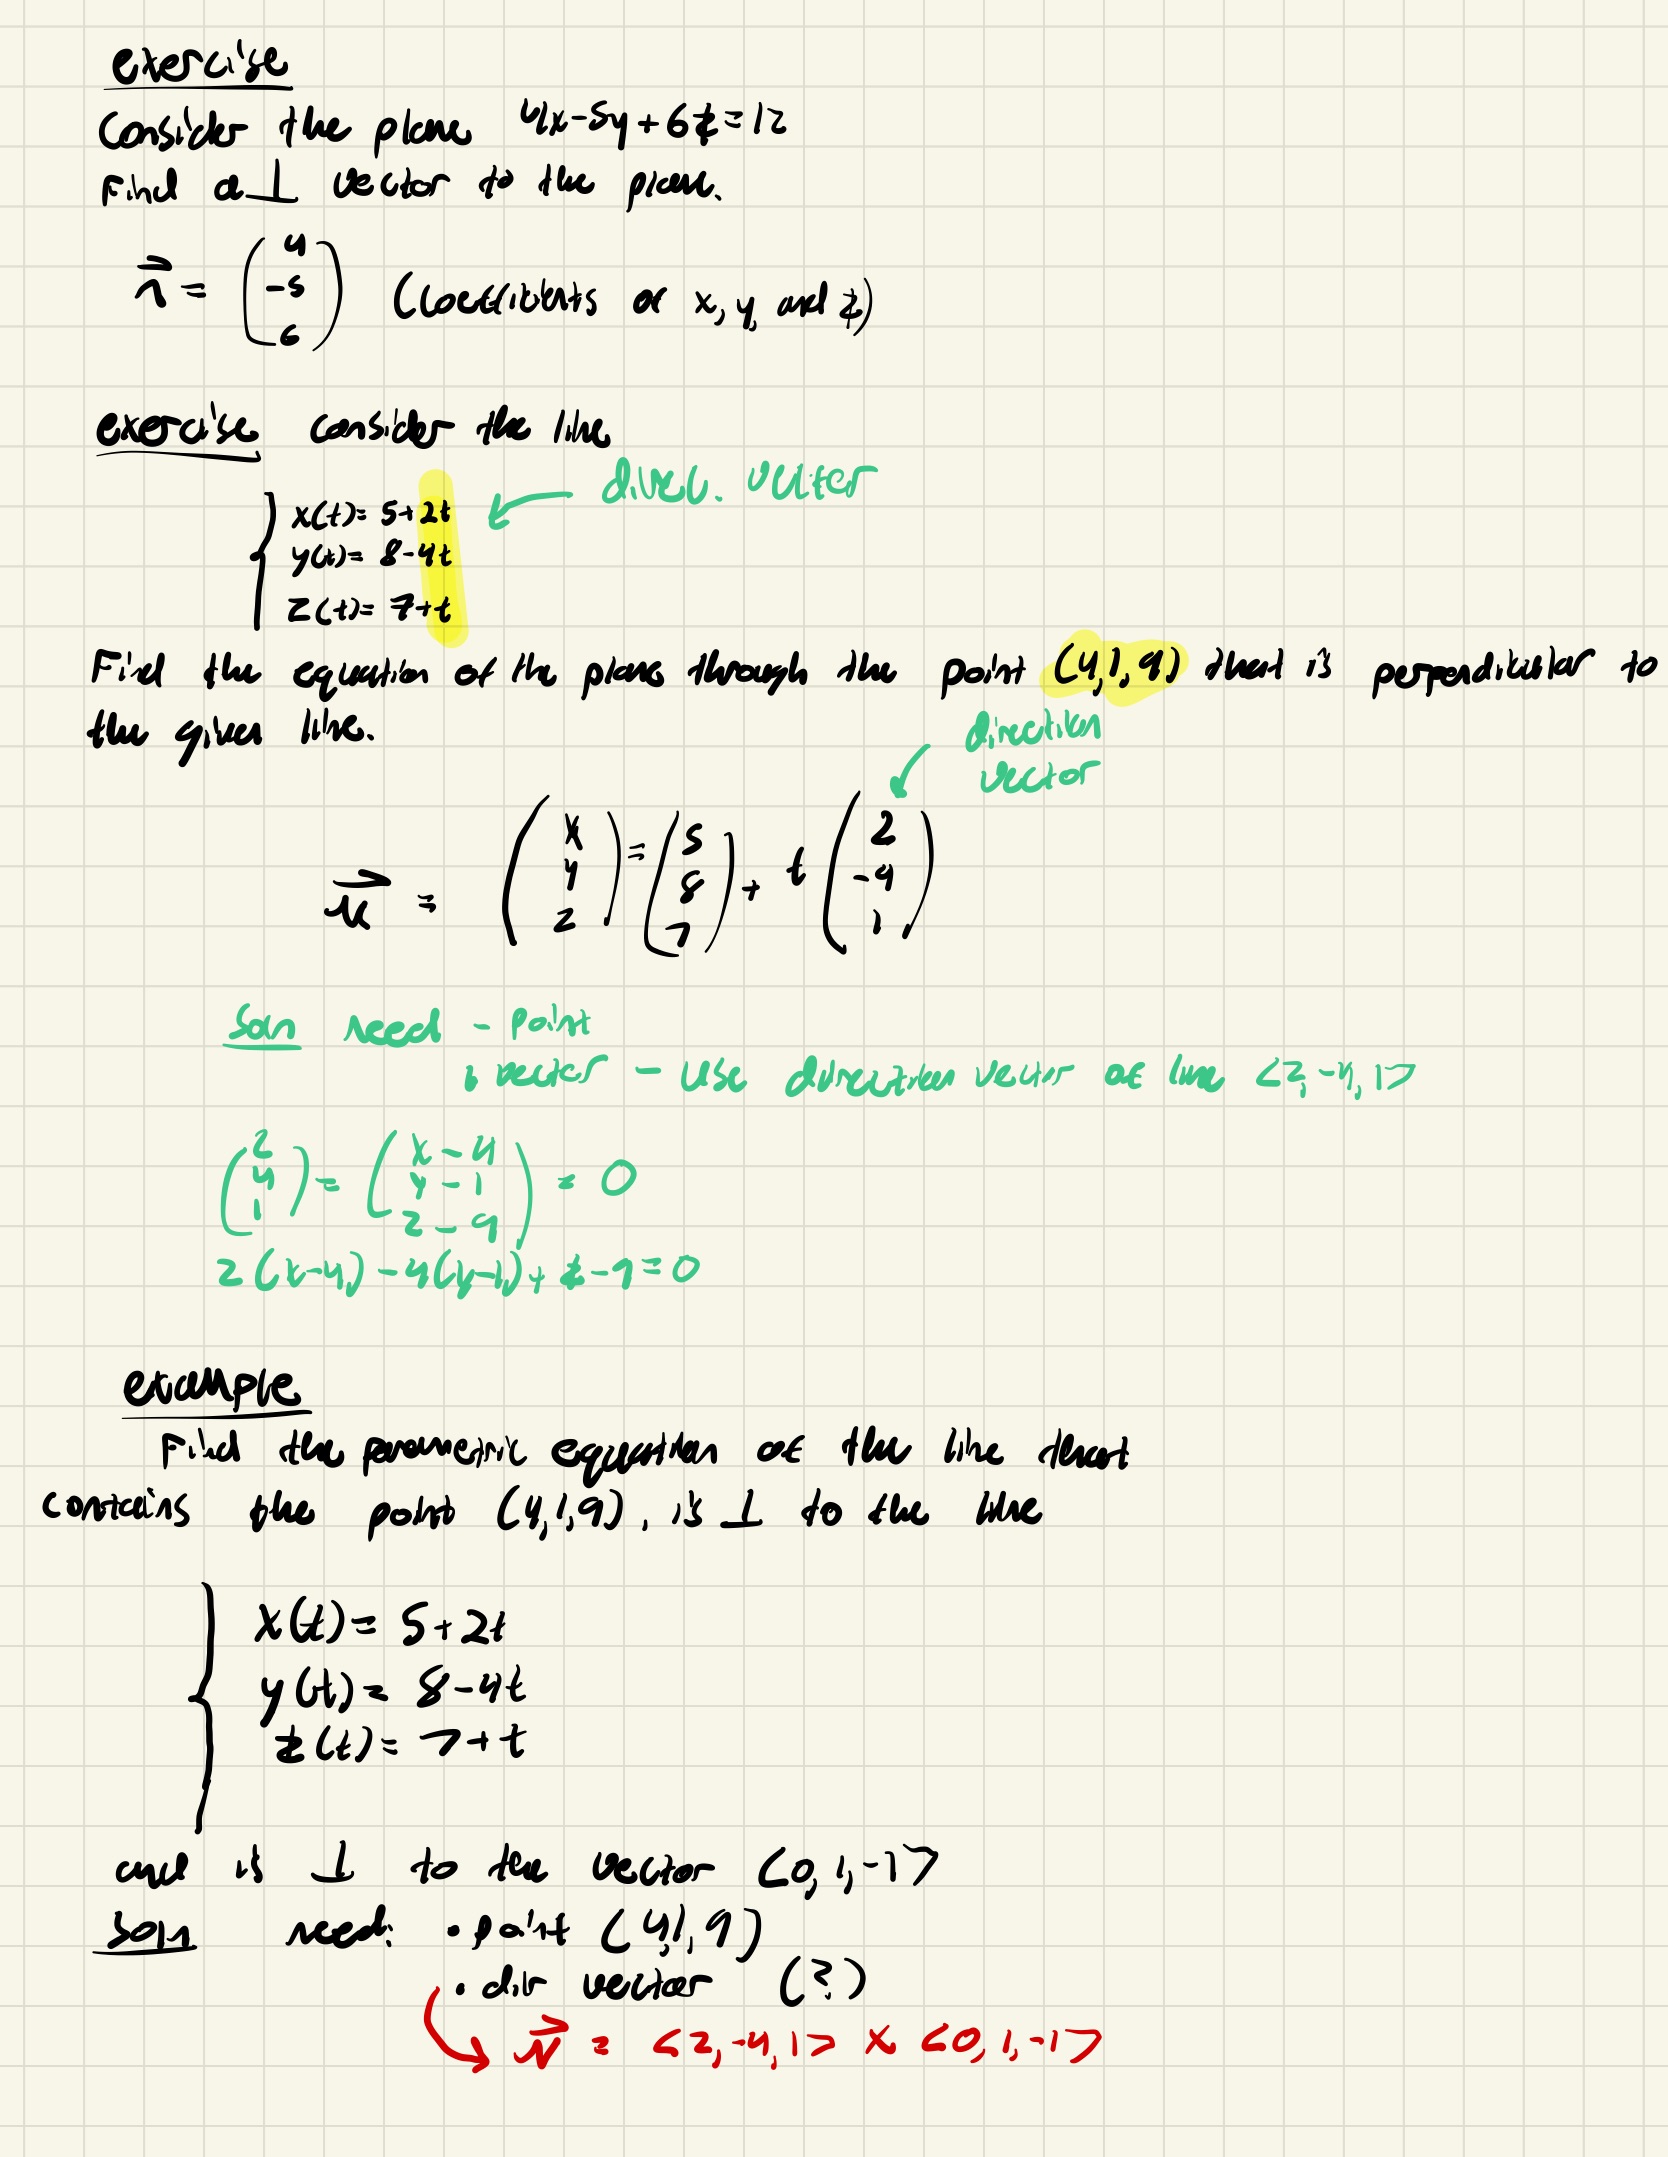 exercise
Consider the plane 4x-5y+6z=12
Find a ⊥ vector to the plane.
n⃗ = (4 -5 6) (coefficients of x, y, and z)
exercise consider the line
direc. vector
x(t)= 5+2t
y(t)= 8-4t
z(t)= 7+t
Find the equation of the plane through the point (4,1,9) that is perpendicular to
the given line.
direction
vector
u⃗ = (x y z) = (5 8 7) + t (2 -4 1)
soln need - point
• vector - use direction vector of line <2,-4,1>
(2 4 1) = (x-4 y-1 z-9) = 0
2(x-4)-4(y-1)+z-9=0
example
Find the parametric equation of the line that
contains the point (4,1,9), is ⊥ to the line
x(t)= 5+2t
y(t)= 8-4t
z(t)= 7+t
and is ⊥ to the vector <0,1,-1>
soln need: • point (4,1,9)
• dir vector (?)
N⃗ = <2,-4,1> x <0,1,-1>